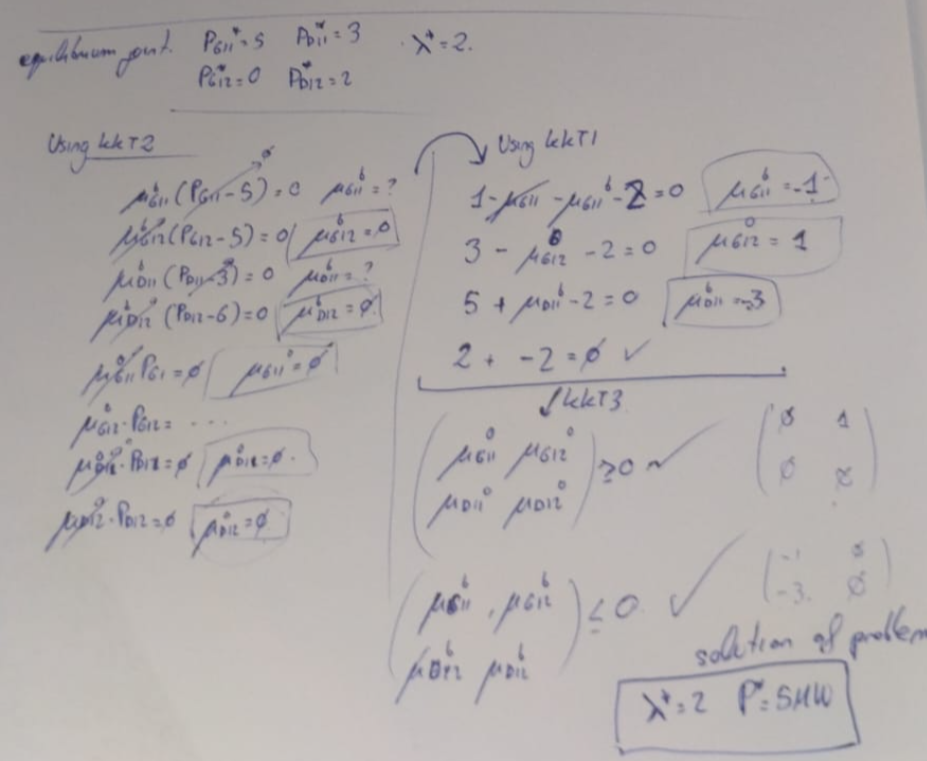 equilibrium point. P_G11* = 5 P_D11* = 3 · λ* = 2.
P_G12* = 0 P_D12* = 2
Using KKT2
μ_G11^b (P_G11 - 5) = 0 μ_G11^b = ?
μ_G12^b (P_G12 - 5) = 0 μ_G12^b = 0
μ_D11^b (P_D11 - 3) = 0 μ_D11^b = ?
μ_D12^b (P_D12 - 6) = 0 μ_D12^b = ∅
μ_G11^0 P_G1 = ∅ μ_G11^0 = ∅
μ_G12^0 · P_G12 = ...
μ_D11^0 · P_D12 = ∅ μ_D11^0 = ∅.
μ_D12^0 · P_D12 = ∅ μ_D12^0 = ∅
Using KKT1
1 - μ_G11 - μ_G11^b - 2 = 0 μ_G11^b = -1
3 - μ_G12^0 - 2 = 0 μ_G12^0 = 1
5 + μ_D11^b - 2 = 0 μ_D11^b = -3
2 + -2 = ∅ ✓
↓ KKT3
( μ_G11^0 μ_G12^0 ) ≥ 0 ✓ ( ∅ 1 )
( μ_D11^0 μ_D12^0 )
( μ_G11^b , μ_G12^b ) ≤ 0 ✓ ( -1 )
( μ_D12^b μ_D12^b ) ( -3. ∅ )
solution of problem
λ* = 2 P* = 5MW